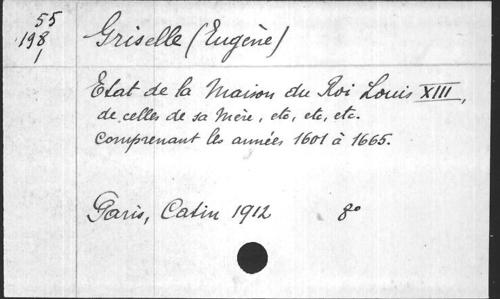 55
198
1
Griselle (Eugène)
Etat de la Maison du Roi Louis XIII,
de celles de sa Mère, etc, etc, etc.
comprenant les années 1601 à 1665.
Paris, Catin 1912 8°